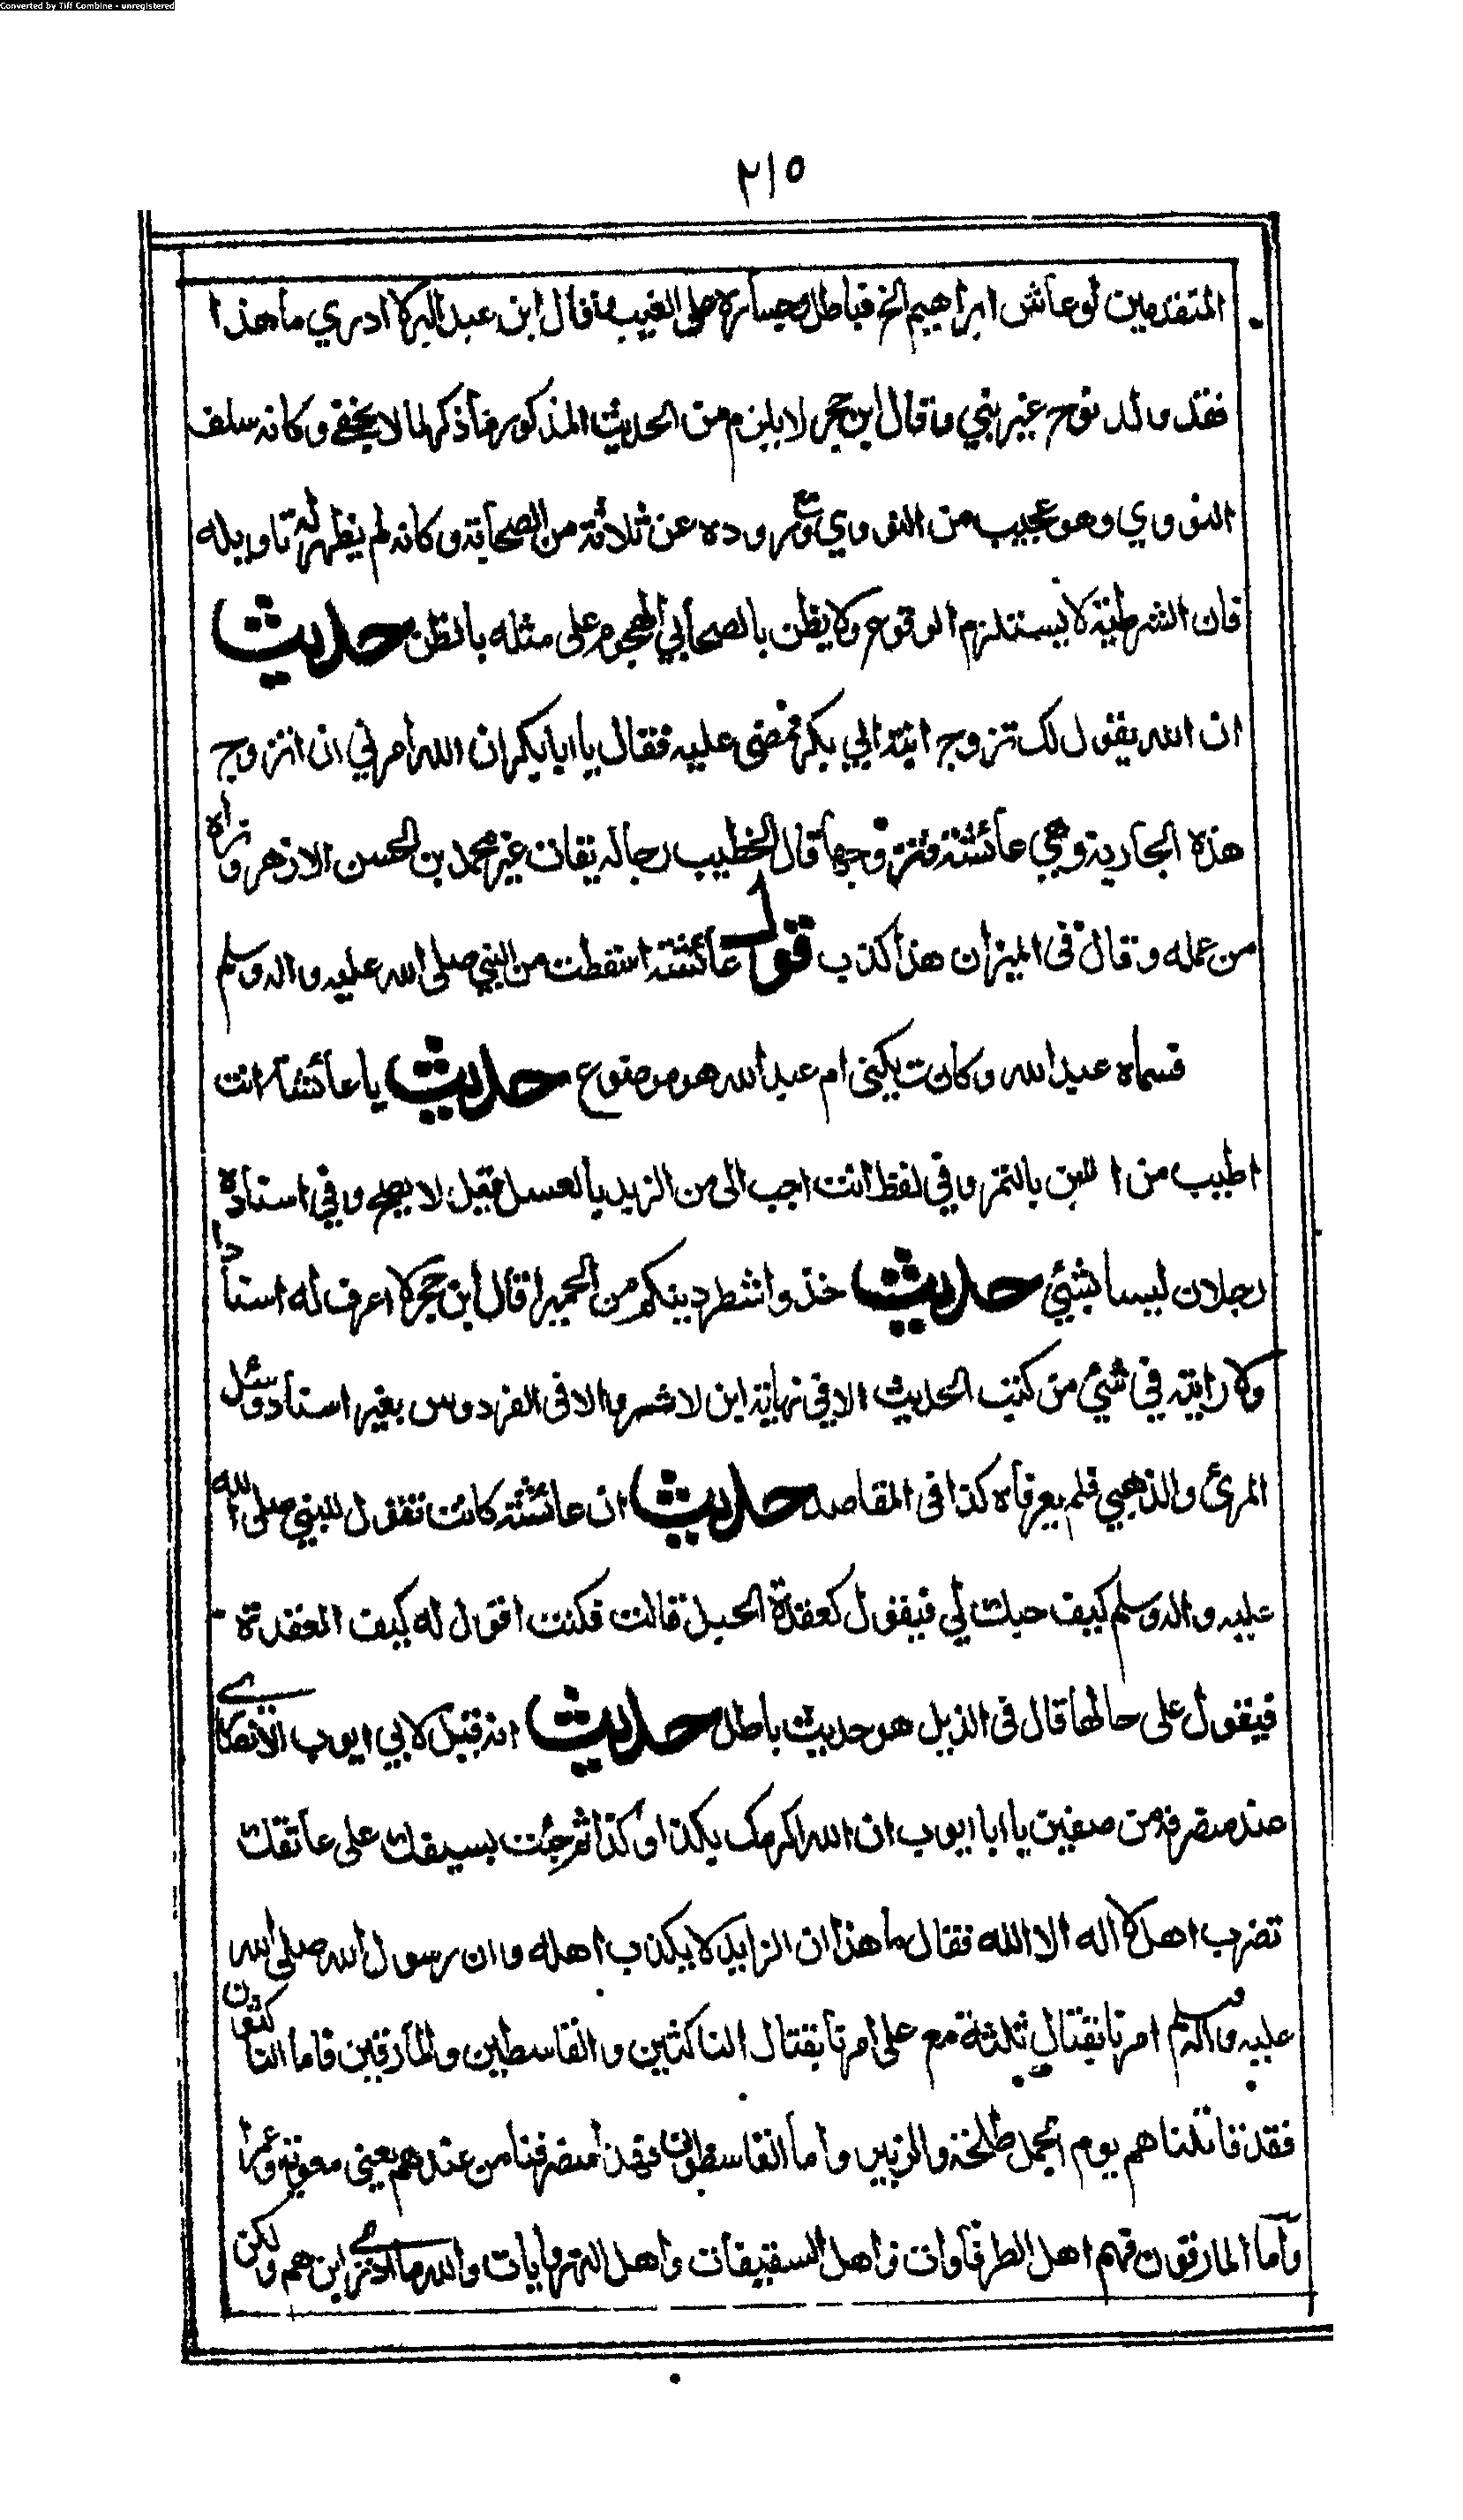 Converted by Tiff Combine - unregistered
٢١٥
المتقدمين لو عاش ابراهيم الخ فباطل وجسارة على الغيب وقال ابن عبد البر لا ادري ما هذا
فقد ولد نوح غير نبي وقال ابن حجر لا يلزم من الحديث المذكور ما ذكر لما لا يخفى وكانه سلف
النووي وهو عجيب من النووي مع وروده عن ثلاثة من الصحابة وكانه لم يظهر له تاويله
فان الشرطية لا يستلزم الوقوع ولا يظن بالصحابي الهجوم على مثله بالظن حديث
ان الله يقول لك تزوج ابنة ابي بكر فمضى عليه فقال يا ابا بكر ان الله امرني ان اتزوج
هذه الجارية وهي عائشة فتزوجها قال الخطيب رجاله ثقات غير محمد بن الحسن الازهر ونراه
من عمله وقال في الميزان هذا كذب قول عائشة اسقطت من النبي صلى الله عليه واله وسلم
فسماه عبد الله وكانت يكنى ام عبد الله هو موضوع حديث يا عائشة انت
اطيب من اللبن بالتمر وفي لفظ انت احب الي من الزبد بالعسل قيل لا يصح وفي اسناده
رجلان ليسا بشئي حديث خذوا شطر دينكم من الحميرا قال ابن حجر لا اعرف له اسنادا
ولا رايته في شئي من كتب الحديث الا في نهاية ابن لاثير والا في الفردوس بغير اسناد وسئل
المزي والذهبي فلم يعرفاه كذا في المقاصد حديث ان عائشة كانت تقول للنبي صلى الله
عليه واله وسلم كيف حبك لي فيقول كعقدة الحبل قالت فكنت اقول له كيف العقدة
فيقول على حالها قال في الذيل هو حديث باطل حديث انه قيل لابي ايوب الانصاري
عند منصرفه من صفين يا ابا ايوب ان الله اكرمك بكذا وكذا ثم جئت بسيفك على عاتقك
تضرب اهل لا اله الا الله فقال ما هذا ان الرايد لا يكذب اهله وان رسول الله صلى الله
عليه واله وسلم امرنا بقتال ثلثة مع علي امرنا بقتال الناكثين والقاسطين والمارقين فاما الناكثون
فقد قاتلناهم يوم الجمل طلحة والزبير واما القاسطون فهذا منصرفنا من عندهم يعني معوية وعمرا
واما المارقون فهم اهل الطرفاوات واهل السقيفات واهل النهروايات والله ما ادري اين هم ولكن